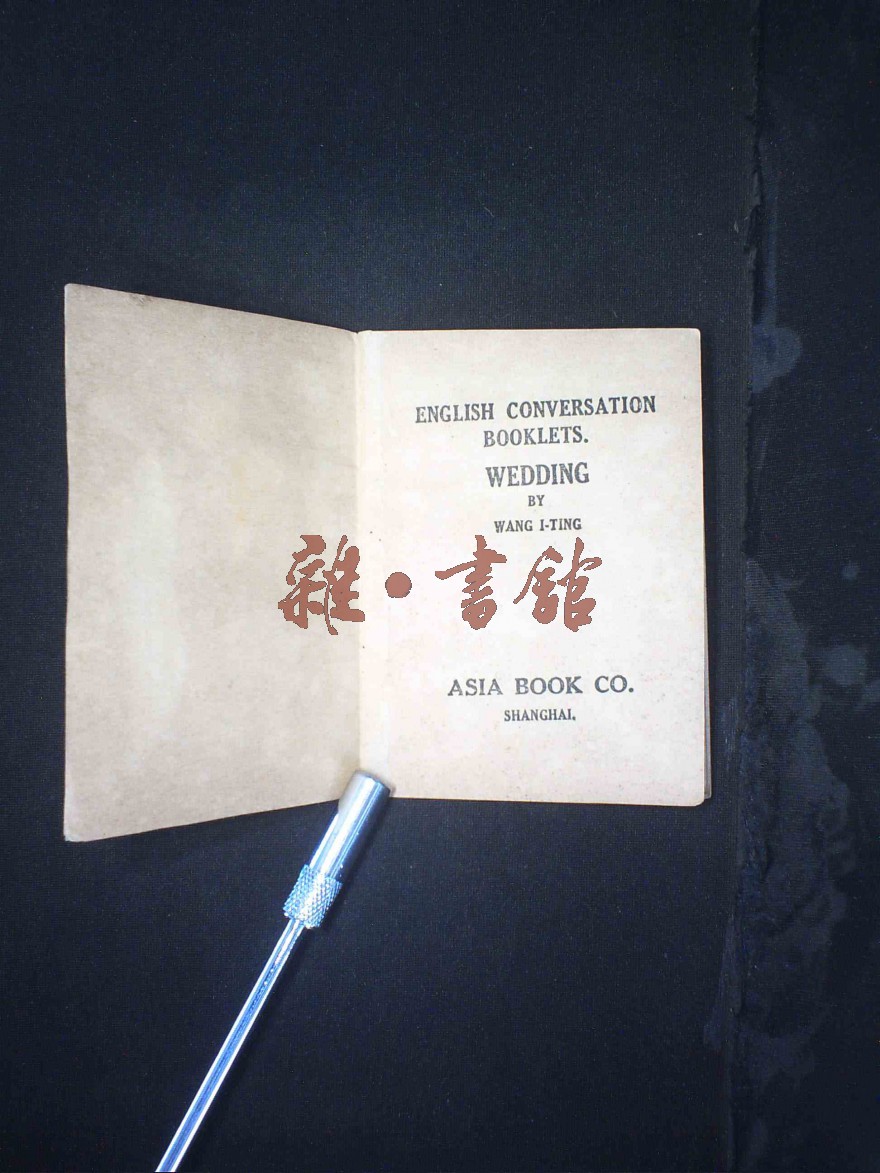 ENGLISH CONVERSATION
BOOKLETS.
WEDDING
BY
WANG I-TING
雜·書館
ASIA BOOK CO.
SHANGHAI.